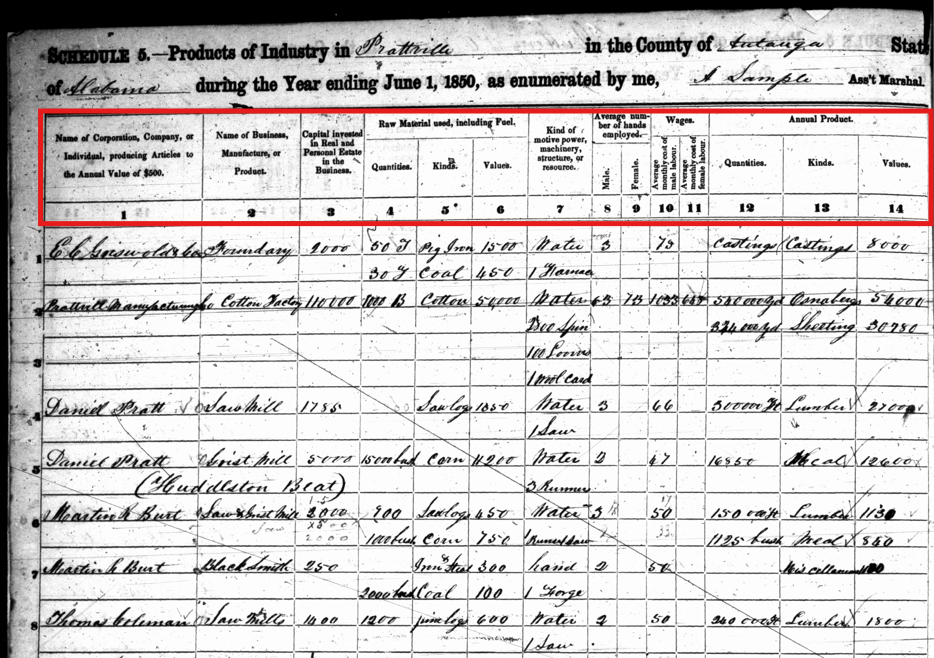 SCHEDULE 5.—Products of Industry in Prattville in the County of Autauga State
of Alabama during the Year ending June 1, 1850, as enumerated by me, A Sample Ass't Marshal.
Name of Corporation, Company, or Individual, producing Articles to the Annual Value of $500.
Name of Business, Manufacture, or Product.
Capital invested in Real and Personal Estate in the Business.
Raw Material used, including Fuel.
Quantities. Kinds. Values.
Kind of motive power, machinery, structure, or resource.
Average number of hands employed.
Male. Female.
Wages.
Average monthly cost of male labour. Average monthly cost of female labour.
Annual Product.
Quantities. Kinds. Values.
1 2 3 4 5 6 7 8 9 10 11 12 13 14
1 E C Griswold & Co Foundary 2000 50 T Pig Iron 1500 Water 3 75 Castings Castings 8000
30 T Coal 450 1 Furnace
2 Prattvill Manufacturing Co Cotton Factory 110000 Cotton 50,000 Water 63 73 1033 647 540000 yd Osnabergs 54000
324000 yd Sheeting 30780
100 Looms
3
1 wool Card
4 Daniel Pratt Saw Mill 1785 Saw logs 1350 Water 3 66 300000 ft Lumber 2700
1 Saw
5 Daniel Pratt Grist Mill 5000 15000 bush Corn Water 2 47 16850 Meal 12600
(Huddleston Beat) 3 Runner
6 Martin h Burt Saw & Grist Mill 2000 900 Saw logs 450 Water 3 50 150 000 ft Lumber 1130
2000 1000 bush Corn 750 1 Runner 1 Saw 1125 bush Meal 840
7 Martin h Burt Black Smith 250 Iron & Steel 300 hand 2 50 Miscellaneous
2000 bush Coal 100 1 Forge
8 Thomas Coleman Saw Mills 1400 1200 pine logs 600 Water 2 50 240 000 ft Lumber 1800
1 Saw